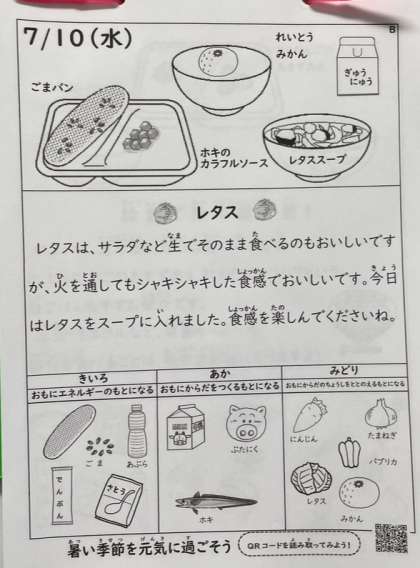 7/10(水)
B
れいとう
みかん
ぎゅう
にゅう
ごまパン
ホキの
カラフルソース
レタススープ
レタス
レタスは、サラダなど生でそのまま食べるのもおいしいです
が、火を通してもシャキシャキした食感でおいしいです。今日
はレタスをスープに入れました。食感を楽しんでくださいね。
きいろ
おもにエネルギーのもとになる
ごま
あぶら
でんぷん
さとう
あか
おもにからだをつくるもとになる
ぶたにく
ホキ
みどり
おもにからだのちょうしをととのえるもとになる
にんじん
たまねぎ
パプリカ
レタス
みかん
暑い季節を元気に過ごそう
QRコードを読み取ってみよう!